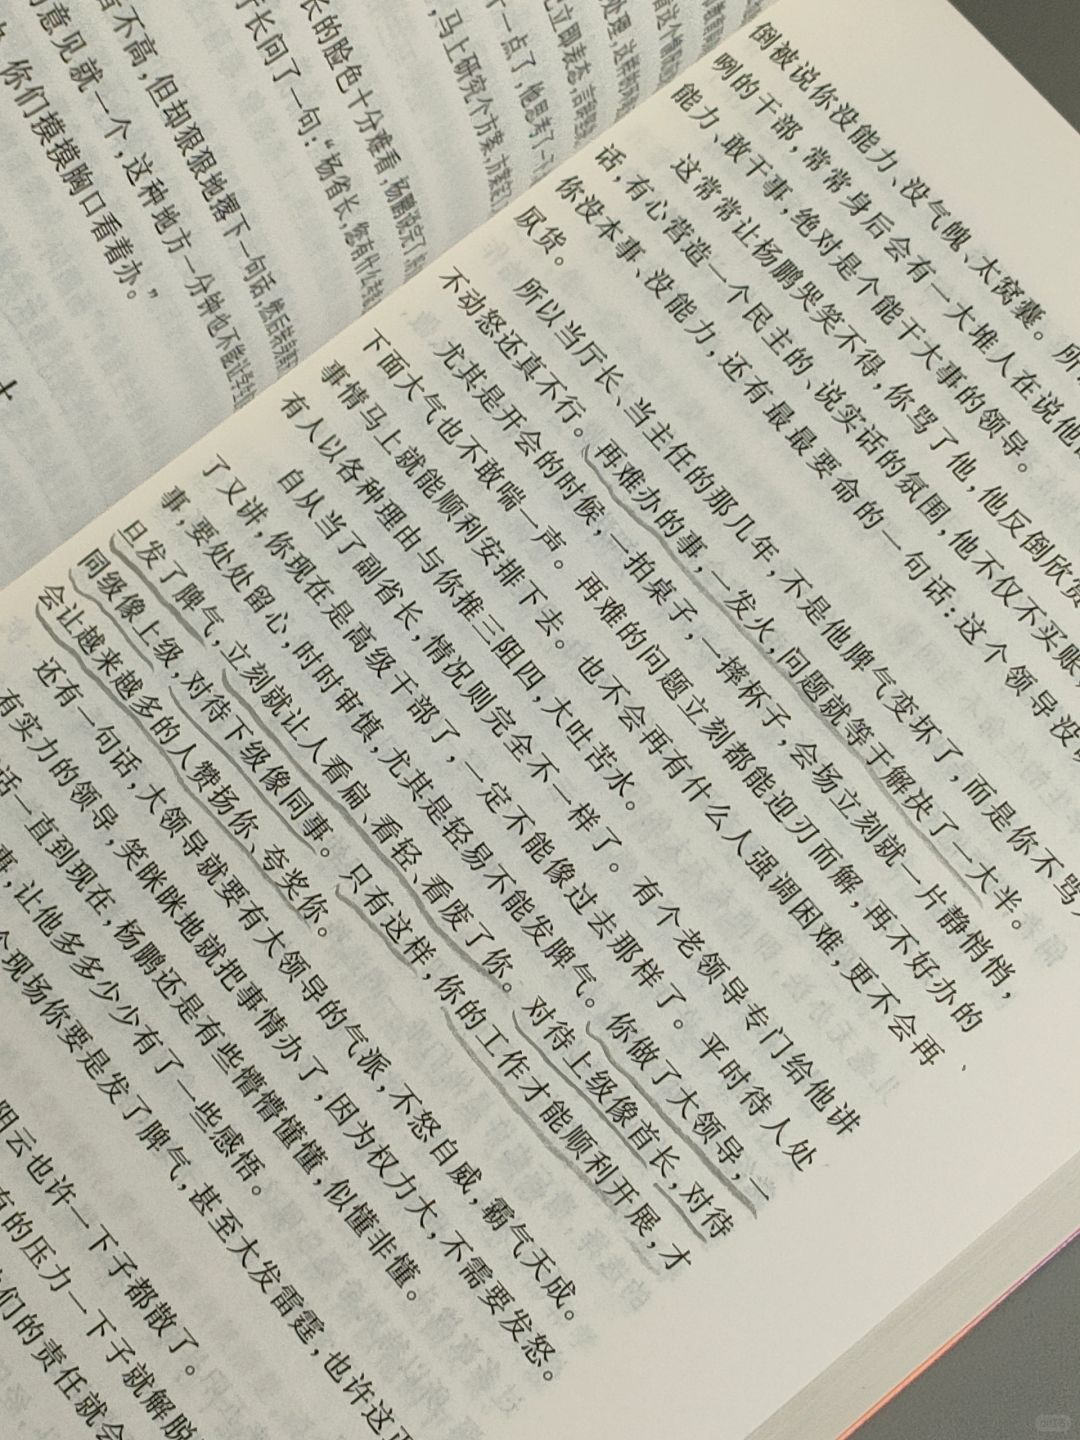 长的脸色十分难看,杨鹏说完了,
厅长问了一句:“杨省长,您有什么
言不高,但却狠狠地落下一句话,然后
意见就一个,这种地方一分钟也不能
你们摸摸胸口看着办。”
十
倒被说你没能力、没气魄、太窝囊。所
咧的干部,常常身后会有一大堆人在说他
能力、敢干事,绝对是个能干大事的领导。
这常常让杨鹏哭笑不得,你骂了他,他反倒欣赏
话,有心营造一个民主的、说实话的氛围,他不仅不买账,
你没本事、没能力,还有最最要命的一句话:这个领导没
仄货。
所以当厅长、当主任的那几年,不是他脾气变坏了,而是你不骂人
不动怒还真不行。再难办的事,一发火,问题就等于解决了一大半。
尤其是开会的时候,一拍桌子,一摔杯子,会场立刻就一片静悄悄,
下面大气也不敢喘一声。再难的问题立刻都能迎刃而解,再不好办的
事情马上就能顺利安排下去。也不会再有什么人强调困难,更不会再
有人以各种理由与你推三阻四,大吐苦水。
自从当了副省长,情况则完全不一样了。有个老领导专门给他讲
了又讲,你现在是高级干部了,一定不能像过去那样了。平时待人处
事,要处处留心,时时审慎,尤其是轻易不能发脾气。你做了大领导,一
旦发了脾气,立刻就让人看扁、看轻、看废了你。对待上级像首长,对待
同级像上级,对待下级像同事。只有这样,你的工作才能顺利开展,才
会让越来越多的人赞扬你、夸奖你。
还有一句话,大领导就要有大领导的气派,不怒自威,霸气天成。
有实力的领导,笑眯眯地就把事情办了,因为权力大,不需要发怒。
话一直到现在,杨鹏还是有些懵懵懂懂,似懂非懂。
事,让他多多少少有了一些感悟。
现场你要是发了脾气,甚至大发雷霆,也许这
阳云也许一下子都散了。
有的压力一下子就解脱
们的责任就会